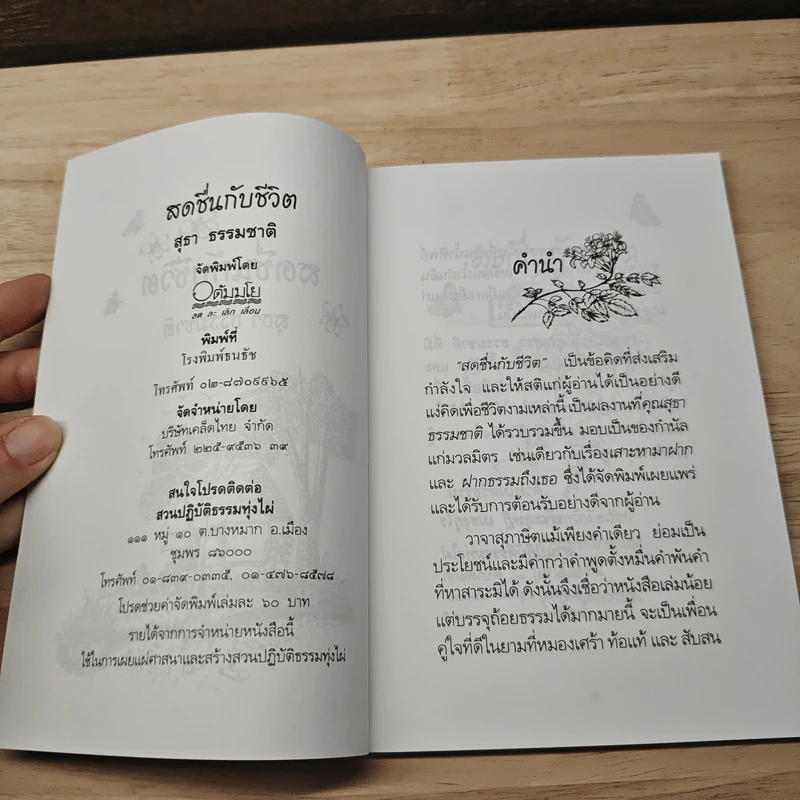 สดชื่นกับชีวิต
สุธา ธรรมชาติ
จัดพิมพ์โดย
อตัมมโย
ลด ละ เลิก เลื่อน
พิมพ์ที่
โรงพิมพ์ธนธัช
โทรศัพท์ ๐๒-๘๗๐๙๖๕
จัดจำหน่ายโดย
บริษัทเคล็ดไทย จำกัด
โทรศัพท์ ๒๒๕-๙๕๓๖ ๓๙
สนใจโปรดติดต่อ
สวนปฏิบัติธรรมทุ่งไผ่
๑๑๑ หมู่ ๑๐ ต.บางหมาก อ.เมือง
ชุมพร ๘๖๐๐๐
โทรศัพท์ ๐๑-๘๓๙-๐๓๓๕, ๐๑-๔๗๖-๘๕๗๘
โปรดช่วยค่าจัดพิมพ์เล่มละ ๖๐ บาท
รายได้จากการจำหน่ายหนังสือนี้
ใช้ในการเผยแผ่ศาสนาและสร้างสวนปฏิบัติธรรมทุ่งไผ่
คำนำ
"สดชื่นกับชีวิต" เป็นข้อคิดที่ส่งเสริม
กำลังใจ และให้สติแก่ผู้อ่านได้เป็นอย่างดี
แง่คิดเพื่อชีวิตงามเหล่านี้ เป็นผลงานที่คุณสุธา
ธรรมชาติ ได้รวบรวมขึ้น มอบเป็นของกำนัล
แก่มวลมิตร เช่นเดียวกับเรื่องเสาะหามาฝาก
และ ฝากธรรมถึงเธอ ซึ่งได้จัดพิมพ์เผยแพร่
และได้รับการต้อนรับอย่างดีจากผู้อ่าน
วาจาสุภาษิตแม้เพียงคำเดียว ย่อมเป็น
ประโยชน์และมีค่ากว่าคำพูดตั้งหมื่นคำพันคำ
ที่หาสาระมิได้ ดังนั้นจึงเชื่อว่าหนังสือเล่มน้อย
แต่บรรจุถ้อยธรรมได้มากมายนี้ จะเป็นเพื่อน
คู่ใจที่ดีในยามที่หมองเศร้า ท้อแท้ และ สับสน